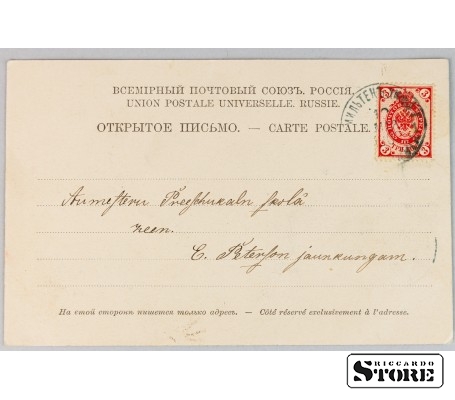 ВСЕМІРНЫЙ ПОЧТОВЫЙ СОЮЗЪ. РОССІЯ.
UNION POSTALE UNIVERSELLE. RUSSIE.
ОТКРЫТОЕ ПИСЬМО. — CARTE POSTALE.
3 3
3 3
Aumeisteru Preeschukaln skolā
zeen.
C. Peterson jaunkungam.
На этой сторонѣ пишется только адресъ. — Côté réservé exclusivement à l'adresse.
RICCARDO
STORE